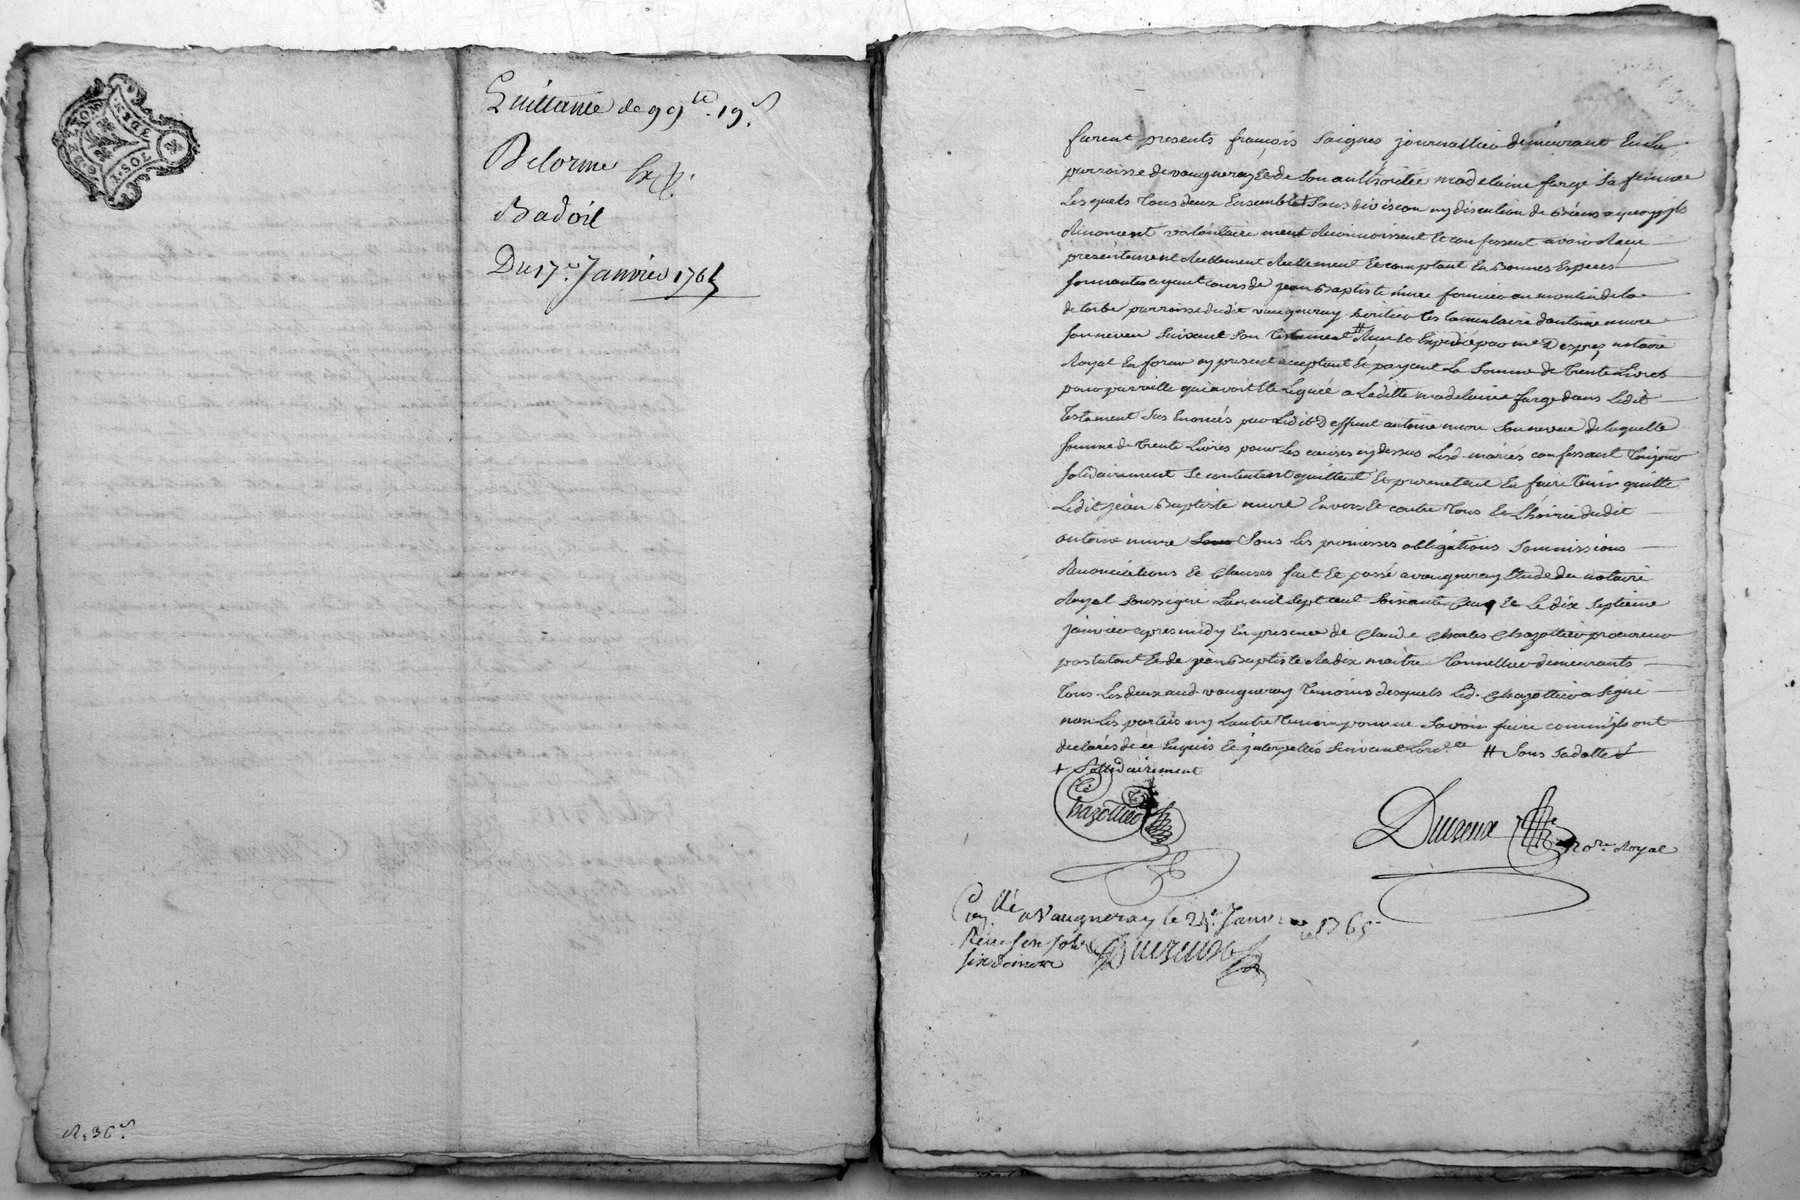 Quittance de 99 lt. 19 s.
Delorme
Badoil
Du 17e. Janvier 1765
R. 36 s.
furent presents françois Saignes journallier demeurant En la
parroisse de vaugneray Et de Son authoritée madelaine farge sa femme
Lesquels tous deux Ensemble + Sans division ny discution de biens a quoy jls
Renoncent volontairement Reconnoissent Et confessent avoir Reçu
présentement Reellement Et comptant En bonnes Espèces
Sonnantes ayant cours de jean Baptiste mure fermier au moulin de la
parroisse dudit vaugneray héritier testamentaire d'antoine mure
Son neveu Suivant Son testament # Reçu Et Expedié par me Despres notaire
Royal En forme cy present acceptant Et payant La Somme de trente Livres
pour pareille qui avoit Eté Leguée a Laditte madelaine farge dans Ledit
testament Sus Enoncés par Ledit Deffunt antoine mure Son neveu de laquelle
Somme de trente Livres pour Les causes cy dessus Lesd. mariés confessant
Solidairement Se contentent quittent Et promettent En faire tenir quitte
Ledit jean Baptiste mure Envers Et contre tous Et L'hoirie dudit
antoine mure Sous Les promesses obligations Soumissions
Renonciations Et Clauses fait Et passé a vaugneray Etude du notaire
Royal Soussigné L'an mil Sept cent Soixante Cinq Et Le dix Septieme
janvier apres midy En presence de Claude Charles Chazottier procureur
postulant Et de jean Baptiste Radix maitre tonnellier demeurants
tous Les deux aud. vaugneray temoins desquels Led. Chazottier a Signé
non Les parties ny L'autre temoin pour ne Savoir faire comm'jls ont
declarés de ce Enquis Et jnterpellés Suivant L'ord.ce # Sous Sa datte
+ Solidairement
Chazottier
Duizeux nore Royal
Con.llé a Vaugneray le 24e. Janvier 1765
Reçu six sols
six deniers Duizeux